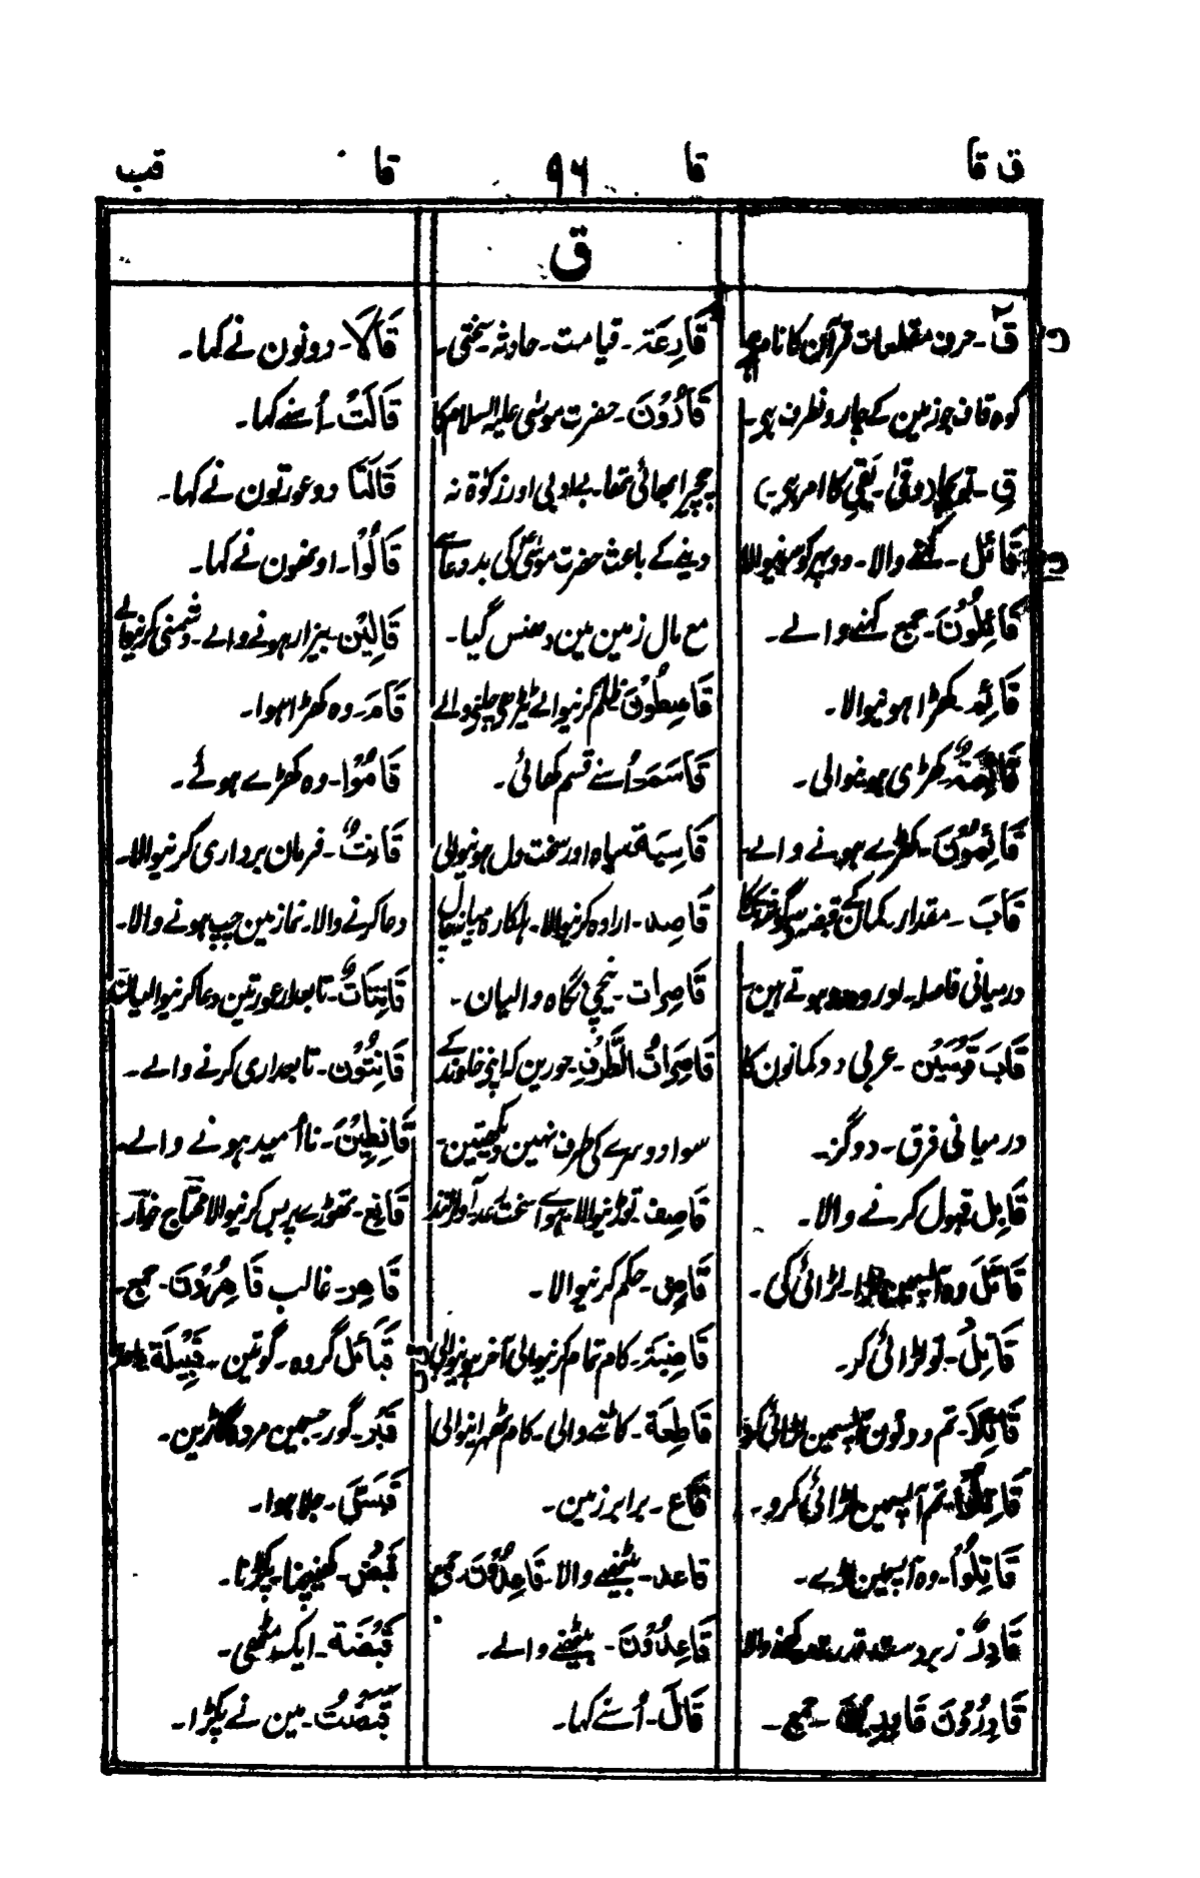 ق قا
قا
٩٦
قا
قب
ق
قٓ۔ حرف مقطعات قرآن کا نام ہے
کوہ قاف جو زمین کے چارو نطرف ہی۔
قِ۔ تو بچا (وقٰی۔ یَقِی کا امر ہی)
قَائل۔ کہنے والا۔ دوپہر کو سونیوالا
قَائِلُوْنَ۔ جمع کہنے والے۔
قَائِمٌ۔ کھڑا ہونیوالا۔
قَائِمَةٌ۔ کھڑی ہونیوالی۔
قَائِمُوْنَ۔ کھڑے ہونے والے۔
قَابَ۔ مقدار۔ کمان کے قبضہ
درمیانی فاصلہ۔ اور وہ دو ہوتے ہین۔
قَابَ قَوْسَیْن۔ عربی دو کمانون کا
درمیانی فرق۔ دو گز۔
قَابِل قبول کرنے والا۔
قَاتَلَ وہ آپسمین لڑا۔ لڑائی کی۔
قَاتِلْ۔ تو لڑائی کر۔
قَاتِلَا۔ تم دونون آپسمین لڑائی کرو
قَاتِلُوْا۔ تم آپسمین لڑائی کرو۔
قَاتَلُوْا۔ وہ آپسمین لڑے۔
قَادِرٌ زبردست قدرت رکھنے والا
قَادِرُوْنَ قَادِرِیْنَ۔ جمع۔
قَارِعَة۔ قیامت۔ حادثہ۔ سختی۔
قَارُوْنَ۔ حضرت موسٰی علیہ السلام کا
چچیرا بھائی تھا۔ بے ادبی اور زکوٰة نہ
دینے کے باعث حضرت موسٰی کی بد دعا سے
مع مال زمین مین دھنس گیا۔
قَاسِطُوْنَ ظلم کرنیوالے ٹیڑھی چلنے والے
قَاسَمَ۔ اُسنے قسم کھائی۔
قَاسِیَة سیاہ اور سخت دل ہونیوالی
قَاصِد۔ ارادہ کرنیوالا۔ ہلکا راہ میانہ چال
قَاصِرات۔ نیچی نگاہ والیان۔
قَاصِرَاتُ الطَّرْفِ۔ حورین کہ اپنے خاوند کے
سوا دوسرے کی طرف نہین دیکھتین۔
قاصِف۔ توڑنیوالا۔ ہوا سخت
قَاضٍ۔ حکم کرنیوالا۔
قَاضِیَة۔ کام تمام کرنیوالی آخر ہونیوالی
قَاطِعَة۔ کاٹنے والی۔ کام ٹھہرانیوالی
قَاع۔ برابر زمین۔
قاعد۔ بیٹھنے والا۔ قَاعِدُوْنَ۔ جمع
قَاعِدُوْنَ۔ بیٹھنے والے۔
قَالَ۔ اُسنے کہا۔
قَالَا۔ دونون نے کہا۔
قَالَتْ۔ اُسنے کہا۔
قَالَتَا دو عورتون نے کہا۔
قَالُوْا۔ اونھون نے کہا۔
قَالِیْن۔ بیزار ہونے والے۔ دشمنی کرنیوالے
قَامَ۔ وہ کھڑا ہوا۔
قَامُوْا۔ وہ کھڑے ہوئے۔
قَانِتٌ۔ فرمان برداری کرنیوالا۔
دعا کرنے والا۔ نماز مین چپ ہونے والا۔
قَانِتَاتٌ۔ تابعدار عورتین دعا کرنیوالیان
قَانِتُوْن۔ تابعداری کرنے والے۔
قَانِطِیْنَ۔ نا اُمید ہونے والے۔
قَانِع۔ تھوڑے پر بس کرنیوالا محتاج
قَاهِر۔ غالب قَاهِرُوْنَ۔ جمع۔
قَبَائل گروہ۔ گوتین۔ قَبِیْلَة واحد
قَبْر۔ گور۔ جسمین مردہ گاڑین۔
قَبَس۔ جلا ہوا۔
قَبْض۔ کھینچنا۔ پکڑنا۔
قَبْضَة۔ ایک مٹھی۔
قَبَضْتُ۔ مین نے پکڑا۔